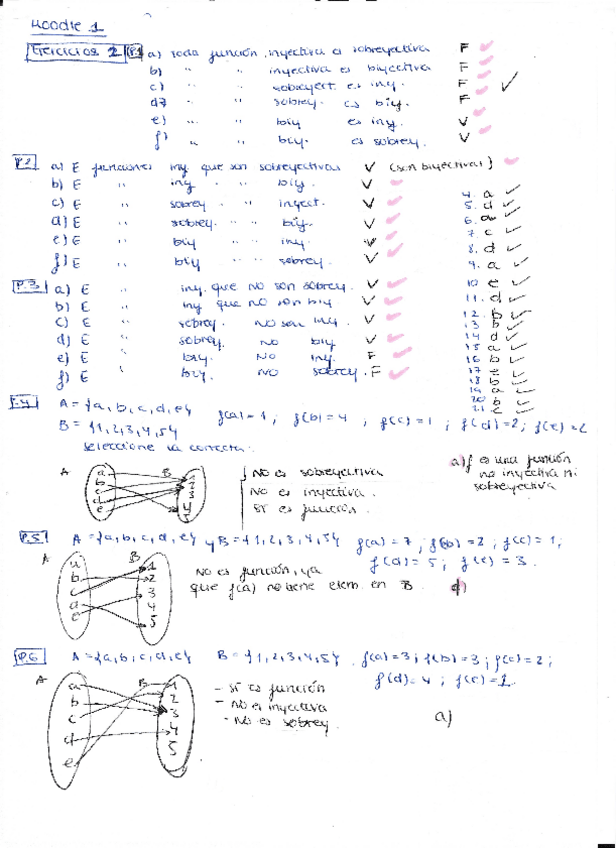 Moodle 1
Ejercicios 2 P.1 a) toda función inyectiva es sobreyectiva F
b) " " inyectiva es biyectiva F
c) " " sobreyect. es iny. F
d) " " sobrey. es biy. F
e) " " biy es iny. V
f) " " biy. es sobrey. V
P.2 a) E funciones iny. que son sobreyectivas V (son biyectivas)
b) E " iny. " " biy. V
c) E " sobrey " " inyect. V
d) E " sobrey. " " biy. V
e) E " biy " " iny. V
f) E " biy " " sobrey. V
P.3 a) E iny. que no son sobrey. V
b) E " iny que no son biy. V
c) E " sobrey. no son iny. V
d) E " sobrey. no biy V
e) E " biy. no iny. F
f) E " biy. no sobrey. F
4. a
5. d
6. a
7. c
8. d
9. a
10 e
11. d
12. b
13 b
14 d
15 a
16 b
17 e
18 b
19 a
20 b
21 c
P.4 A = {a, b, c, d, e}
B = {1, 2, 3, 4, 5} f(a) = 1 ; f(b) = 4 ; f(c) = 1 ; f(d) = 2 ; f(e) = 2
seleccione la correcta.
A B
a
b
c
d
e
1
2
3
4
5
no es sobreyectiva
no es inyectiva.
sí es función.
a) f es una función
no inyectiva ni
sobreyectiva
P.5 A = {a, b, c, d, e} y B = {1, 2, 3, 4, 5} f(a) = 7 ; f(b) = 2 ; f(c) = 1 ;
f(d) = 5 ; f(e) = 3.
A B
a
b
c
d
e
1
2
3
4
5
No es función, ya
que f(a) no tiene elem. en B. d)
P.6 A = {a, b, c, d, e} B = {1, 2, 3, 4, 5} f(a) = 3 ; f(b) = 3 ; f(c) = 2 ;
f(d) = 4 ; f(e) = 1
A B
a
b
c
d
e
1
2
3
4
5
- sí es función
- no es inyectiva
- no es sobrey.
a)